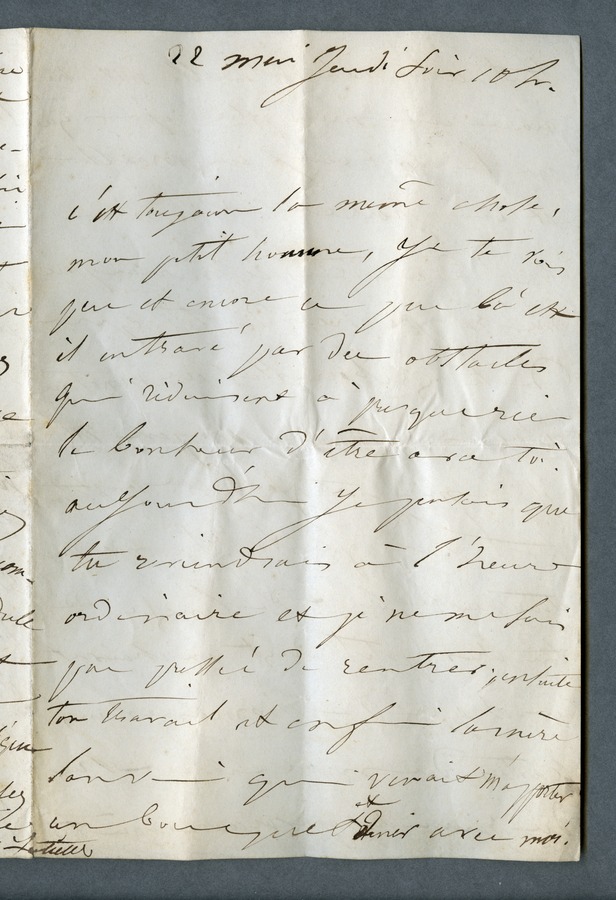 22 mai Jeudi soir 10 h.
c'est toujours la même chose,
mon ptit homme, je te vois
peu et encore ce peu là est
il entravé par des obstacles
qui réduisent à presque rien
le bonheur d'être avec toi.
aujourd'hui je pensais que
tu viendrais à l'heure
ordinaire et je ne me suis
pas pressée de rentrer, ensuite
ton travail et enfin la mère
qui venait m'apporter
un bouquet et diner avec moi.